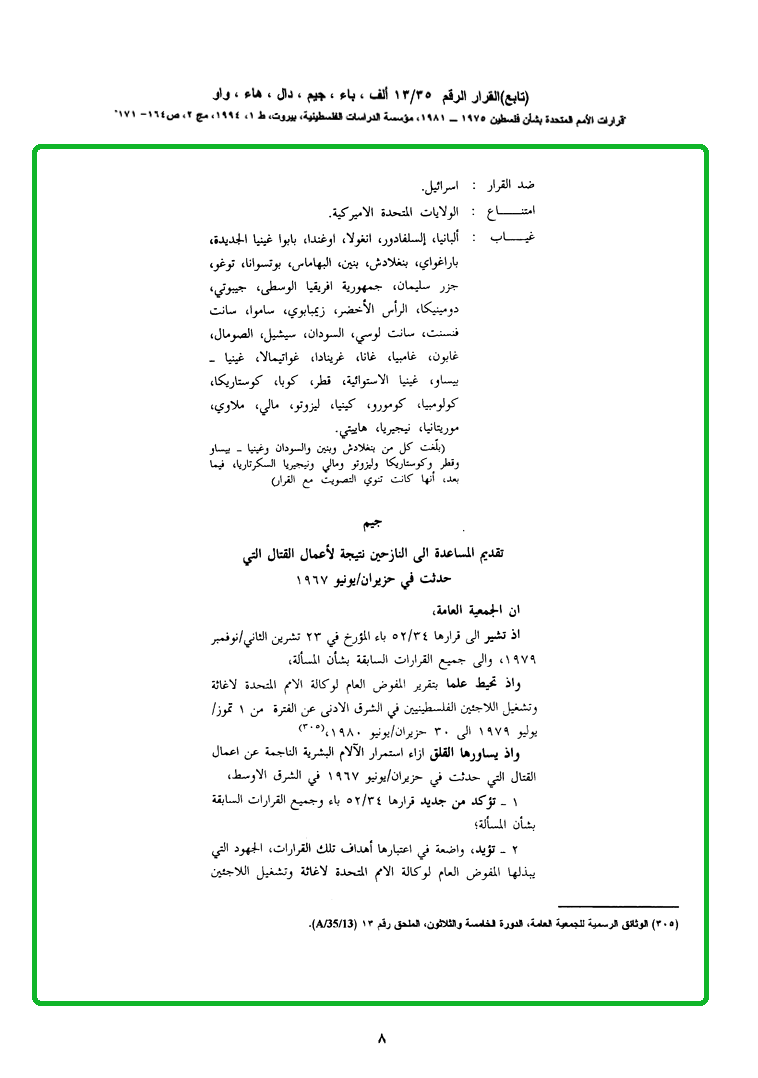 (تابع)القرار الرقم ١٣/٣٥ ألف ، باء ، جيم ، دال ، هاء ، واو
"قرارات الأمم المتحدة بشأن فلسطين ١٩٧٥ – ١٩٨١، مؤسسة الدراسات الفلسطينية، بيروت، ط ١، ١٩٩٤، مج ٢، ص١٦٤- ١٧١"
ضد القرار : اسرائيل.
امتنـــاع : الولايات المتحدة الاميركية.
غيـــاب : ألبانيا، إلسلفادور، انغولا، اوغندا، بابوا غينيا الجديدة،
باراغواي، بنغلادش، بنين، البهاماس، بوتسوانا، توغو،
جزر سليمان، جمهورية افريقيا الوسطى، جيبوتي،
دومينيكا، الرأس الأخضر، زيمبابوي، ساموا، سانت
فنسنت، سانت لوسي، السودان، سيشيل، الصومال،
غابون، غامبيا، غانا، غرينادا، غواتيمالا، غينيا ـ
بيساو، غينيا الاستوائية، قطر، كوبا، كوستاريكا،
كولومبيا، كومورو، كينيا، ليزوتو، مالي، ملاوي،
موريتانيا، نيجيريا، هاييتي.
(بلّغت كل من بنغلادش وبنين والسودان وغينيا ـ بيساو
وقطر وكوستاريكا وليزوتو ومالي ونيجيريا السكرتاريا، فيما
بعد، أنها كانت تنوي التصويت مع القرار)
جيم
تقديم المساعدة الى النازحين نتيجة لأعمال القتال التي
حدثت في حزيران/يونيو ١٩٦٧
ان الجمعية العامة،
اذ تشير الى قرارها ٥٢/٣٤ باء المؤرخ في ٢٣ تشرين الثاني/نوفمبر
١٩٧٩، والى جميع القرارات السابقة بشأن المسألة،
واذ تحيط علما بتقرير المفوض العام لوكالة الامم المتحدة لاغاثة
وتشغيل اللاجئين الفلسطينيين في الشرق الادنى عن الفترة من ١ تموز/
يوليو ١٩٧٩ الى ٣٠ حزيران/يونيو ١٩٨٠،(٣٠٥)
واذ يساورها القلق ازاء استمرار الآلام البشرية الناجمة عن اعمال
القتال التي حدثت في حزيران/يونيو ١٩٦٧ في الشرق الاوسط،
١ ـ تؤكد من جديد قرارها ٥٢/٣٤ باء وجميع القرارات السابقة
بشأن المسألة؛
٢ ـ تؤيد، واضعة في اعتبارها أهداف تلك القرارات، الجهود التي
يبذلها المفوض العام لوكالة الامم المتحدة لاغاثة وتشغيل اللاجئين
(٣٠٥) الوثائق الرسمية للجمعية العامة، الدورة الخامسة والثلاثون، الملحق رقم ١٣ (A/35/13).
٨